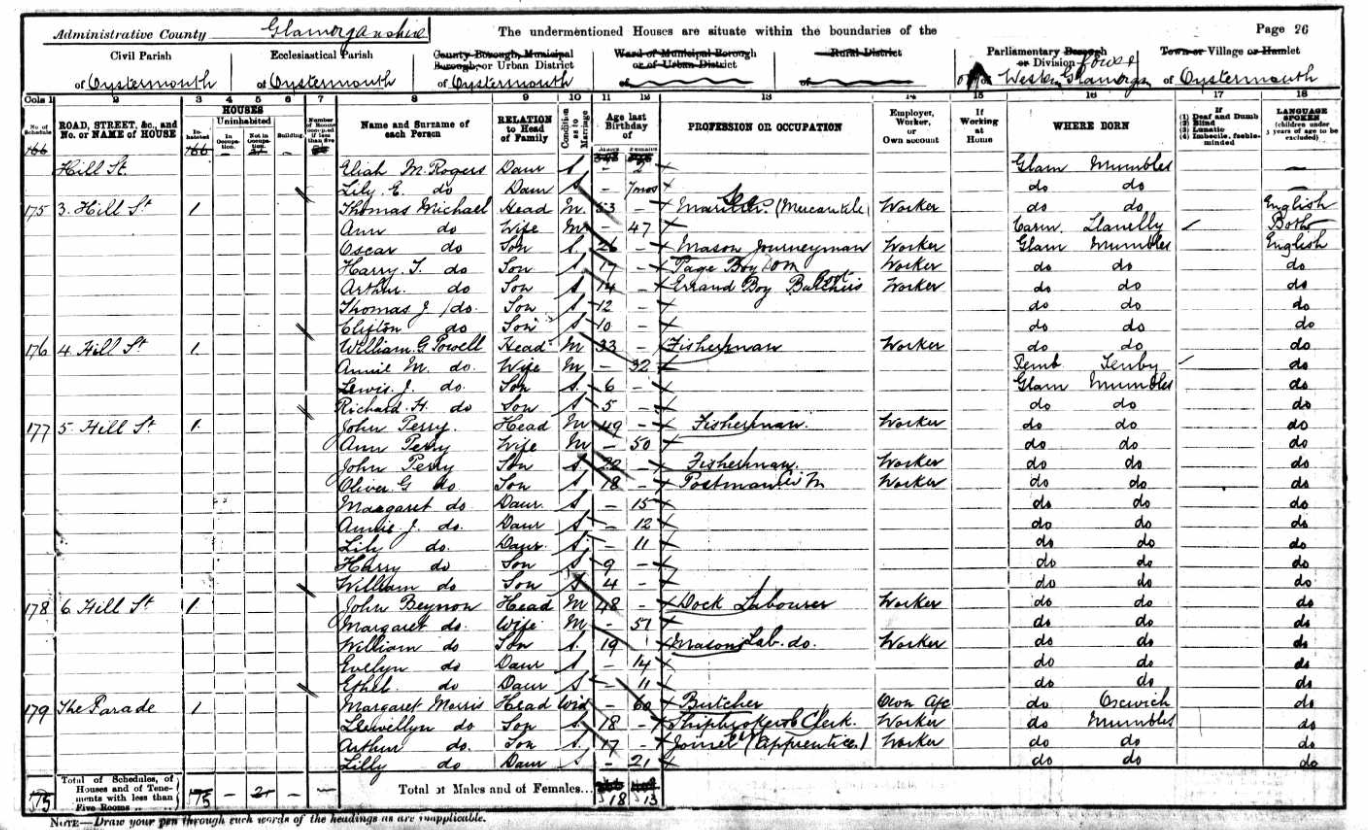 Administrative County Glamorganshire The undermentioned Houses are situate within the boundaries of the Page 26
Civil Parish Ecclesiastical Parish County Borough, Municipal Borough, or Urban District Ward of Municipal Borough or of Urban District Rural District Parliamentary Borough or Division Town or Village or Hamlet
of Oystermouth of Oystermouth of Oystermouth of of of Gower Western Glamorgan of Oystermouth
Cols 1 2 3 4 5 6 7 8 9 10 11 12 13 14 15 16 17 18
No. of Schedule ROAD, STREET, &c., and No. or NAME of HOUSE HOUSES Inhabited Uninhabited In Occupation. Not in Occupation. Building. Number of Rooms occupied if less than five Name and Surname of each Person RELATION to Head of Family Condition as to Marriage Age last Birthday of Males Females PROFESSION OR OCCUPATION Employer, Worker, or Own account If Working at Home WHERE BORN If (1) Deaf and Dumb (2) Blind (3) Lunatic (4) Imbecile, feeble-minded LANGUAGE SPOKEN (children under 3 years of age to be excluded)
166 166
Hill St. M. Rogers Daur S - 2 Glam Mumbles -
Lily E. do Daur S - 7mos do do -
175 3. Hill St 1 Thomas Michael Head M. 53 - Mariner (Mercantile) Sea Worker do do English
Ann do Wife M - 47 Carm. Llanelly Both
Oscar do Son S. 26 - Mason Journeyman Worker Glam Mumbles English
Harry. T. do Son S 17 - Page Boy Dom Worker do do do
Arthur. do Son S 14 - Errand Boy Butchers Worker do do do
Thomas J. do. Son S 12 - do do do
Clifton do Son S 10 - do do do
176 4. Hill St 1. William. G Powell Head M 33 - Fisherman Worker do do do
Annie M. do. Wife M. - 32 Pemb Tenby do
Lewis. J. do. Son S. 6 - Glam Mumbles do
Richard. H. do Son S 5 - do do do
177 5. Hill St 1. John Perry. Head M 49 - Fisherman. Worker do do do
Ann Perry Wife M - 50 do do do
John Perry Son S. 22 - Fisherman. Worker do do do
Oliver. G do Son S. 18 - Postman Worker do do do
Margaret do. Daur. S - 15 do do do
Annie. J. do. Daur S - 12 do do do
Lily do. Daur. S. - 11 do do do
Harry do Son S. 9 - do do do
William do Son S 4 - do do do
178 6 Hill St 1. John Beynon Head M 48 - Dock Labourer Worker do do do
Margaret do. Wife M - 51 do do do
William do Son S. 19 Masons Lab. do. Worker do do do
Evelyn do Daur S - 14 do do do
Ethel. do Daur S - 11 do do do
179 The Parade 1 Margaret Morris Head Wid - 60 Butcher Own Acc do Oxwich do
Llewellyn do. Son S 18 - Shipbrokers Clerk. Worker do Mumbles do
Arthur do. Son S. 17 - Joiner (Apprentice) Worker do do do
Lilly do Daur S - 21 do do do
175 Total of Schedules, of Houses and of Tenements with less than Five Rooms 175 - 2 - - Total of Males and of Females... 18 13
NOTE—Draw your pen through such words of the headings as are inapplicable.